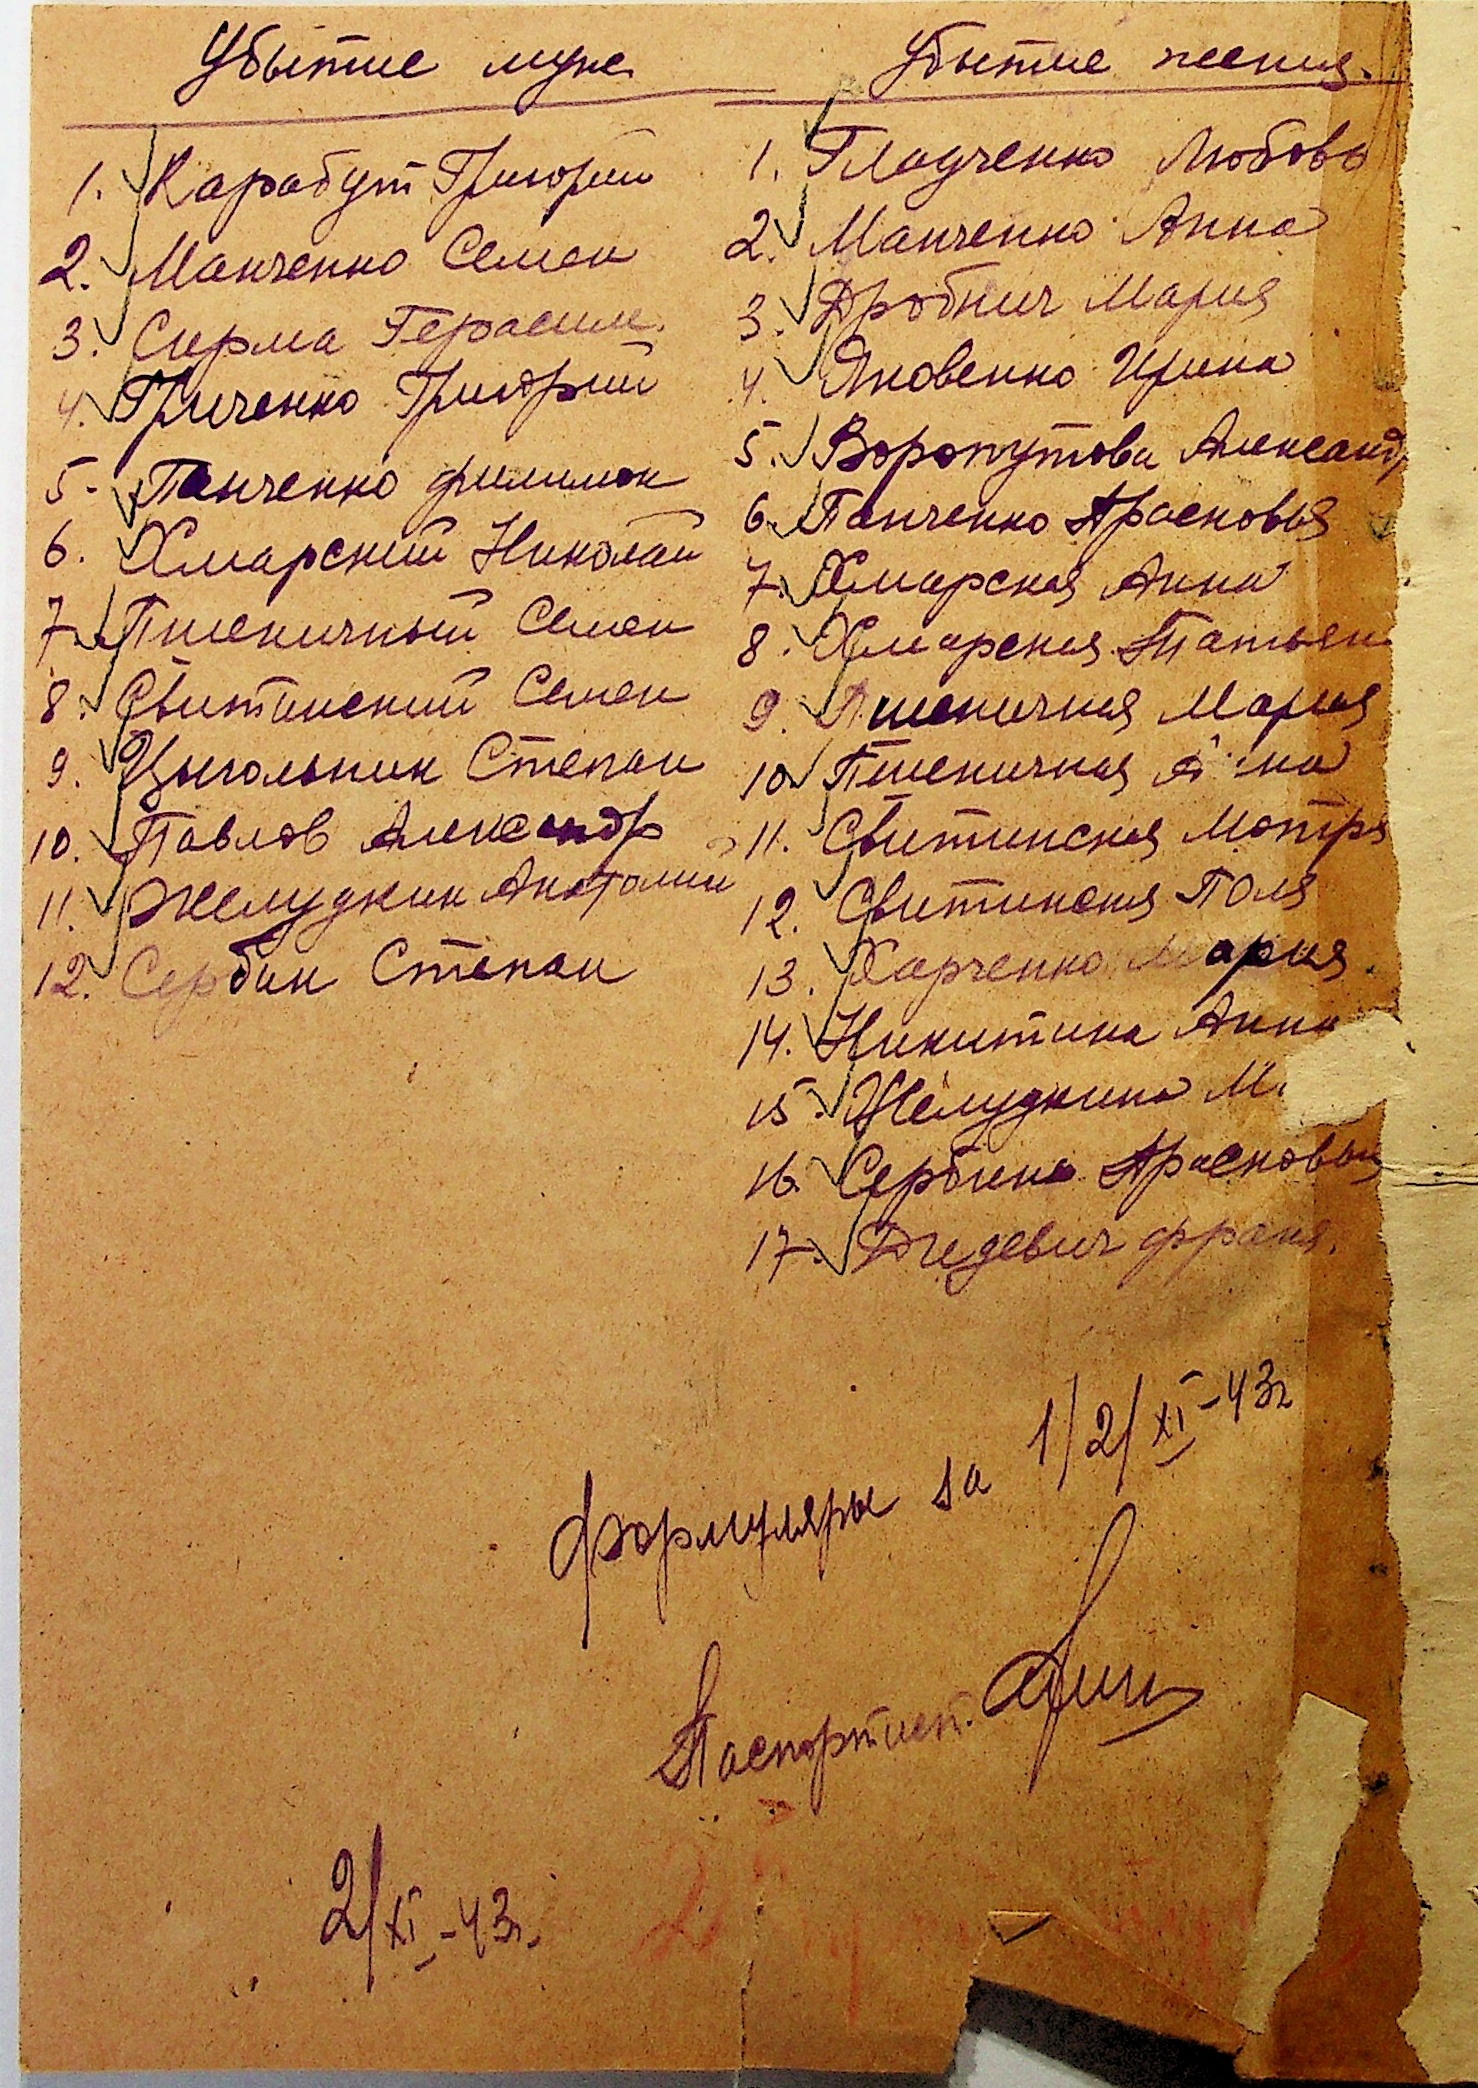 Убытие муж.
1. Карабут Григорий
2. Манченко Семен
3. Сирма Герасим.
4. Гриченко Григорий
5. Панченко Филимон
6. Хмарский Николай
7. Пшеничный Семен
8. Свитинский Семен
9. Цыгольник Степан
10. Павлов Александр
11. Желудкин Анатолий
12. Сербин Степан
Убытие женщ.
1. Гладченко Любовь
2. Манченко Анна
3. Дробнич Мария
4. Яковенко Ирина
5. Воропутова Александ
6. Панченко Прасковья
7. Хмарская Анна
8. Хмарская Татьян
9. Пшеничная Мария
10. Пшеничная
11. Свитинская Мотря
12. Свитинская Поля
13. Харченко Мария
14. Никитина Анна
15. Желудкина М.
16. Сербина Прасковья
17. Дзедевич Франя.
Формуляры за 1/2/XI-43г
Паспортист.
2/XI-43г.